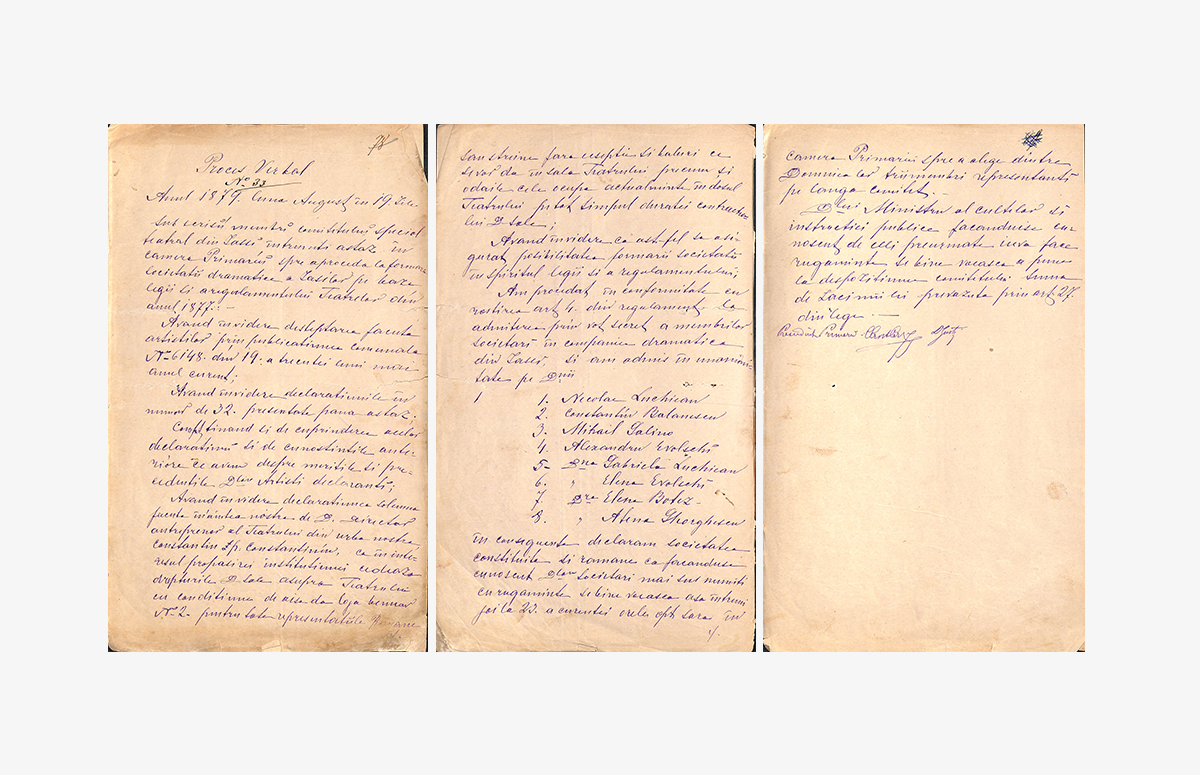 78
Proces Verbal
No. 33
Anul 1879 luna August în 19 zile
Sus scrisii membri comitetului special
teatral din Iassi întruniti astaz in
camera Primariei spre a proceda la formarea
societatii dramatice a Iasilor pe baza
legii si a regulamentului Teatrelor din
anul 1877: —
Avand în videre desteptarea facuta
artistilor prin publicatiunea comunala
No 6148. din 19. a trecutei luni
anul curent;
Avand în videre declaratiunile în
numer de 32. presentate pana astaz;
Constatand si de cuprinderea acelor
declaratiuni si de cunostintile ante-
riore ce avem despre meritile si pre-
cedentile Dlor Artisti declaranti;
Avand în videre declaratiunea solemna
facuta înaintea nostra de D. Director
antreprenor al Teatrului din urba nostra
Constantin Sp. Constantiniu, ca în inte-
resul propasirei institutiunei cedeaza
drepturile D sale asupra Teatrului
cu conditiune de a i se da loja benuar
No 2. pentru tote representatiile Romane
sau straine fara eseptie si baluri ce
se vor da in sala Teatrului precum si
odaile cele ocupa actualminte în dosul
Teatrului pe tot timpul duratei contractu-
lui D sale;
Avand în videre ca astfel se asi-
gurat posibilitatea formarii societatii
în spiritul legii si a regulamentului;
Am procedat în conformitate cu
rostirea art 4. din regulament la
admiterea prin vot secret a membrilor
societari în compania dramatica
din Iassi, si am admis în unanimi-
tate pe Dnii
1 1. Necolae Luchian
2. Constantin Balanescu
3. Mihail Galino
4. Alexandru Evolschi
5. Dna Gabriela Luchian
6. " Elena Evolschi
7. Dra Elena Botez
8. " Atena Ghorghescu
în consequenta declaram societatea
constituita si romane ca facanduse
cunoscut Dlor societari mai sus numiti
cu rugaminte se bine voeasca a se întruni
joi la 23. a curentei orele opt sara în
./.
camera Primariei spre a alege dintre
Domniea lor trii membri representanti
pe langa comitet. —
Dlui Ministru al cultelor si
instructiei publice facanduse cu-
noscut de cele precurmate i se va face
rugaminte se bine voeasca a pune
la despozitiunea comitetului suma
de Lei prevazuta prin art 27.
din lege. —
Presedinte Primar